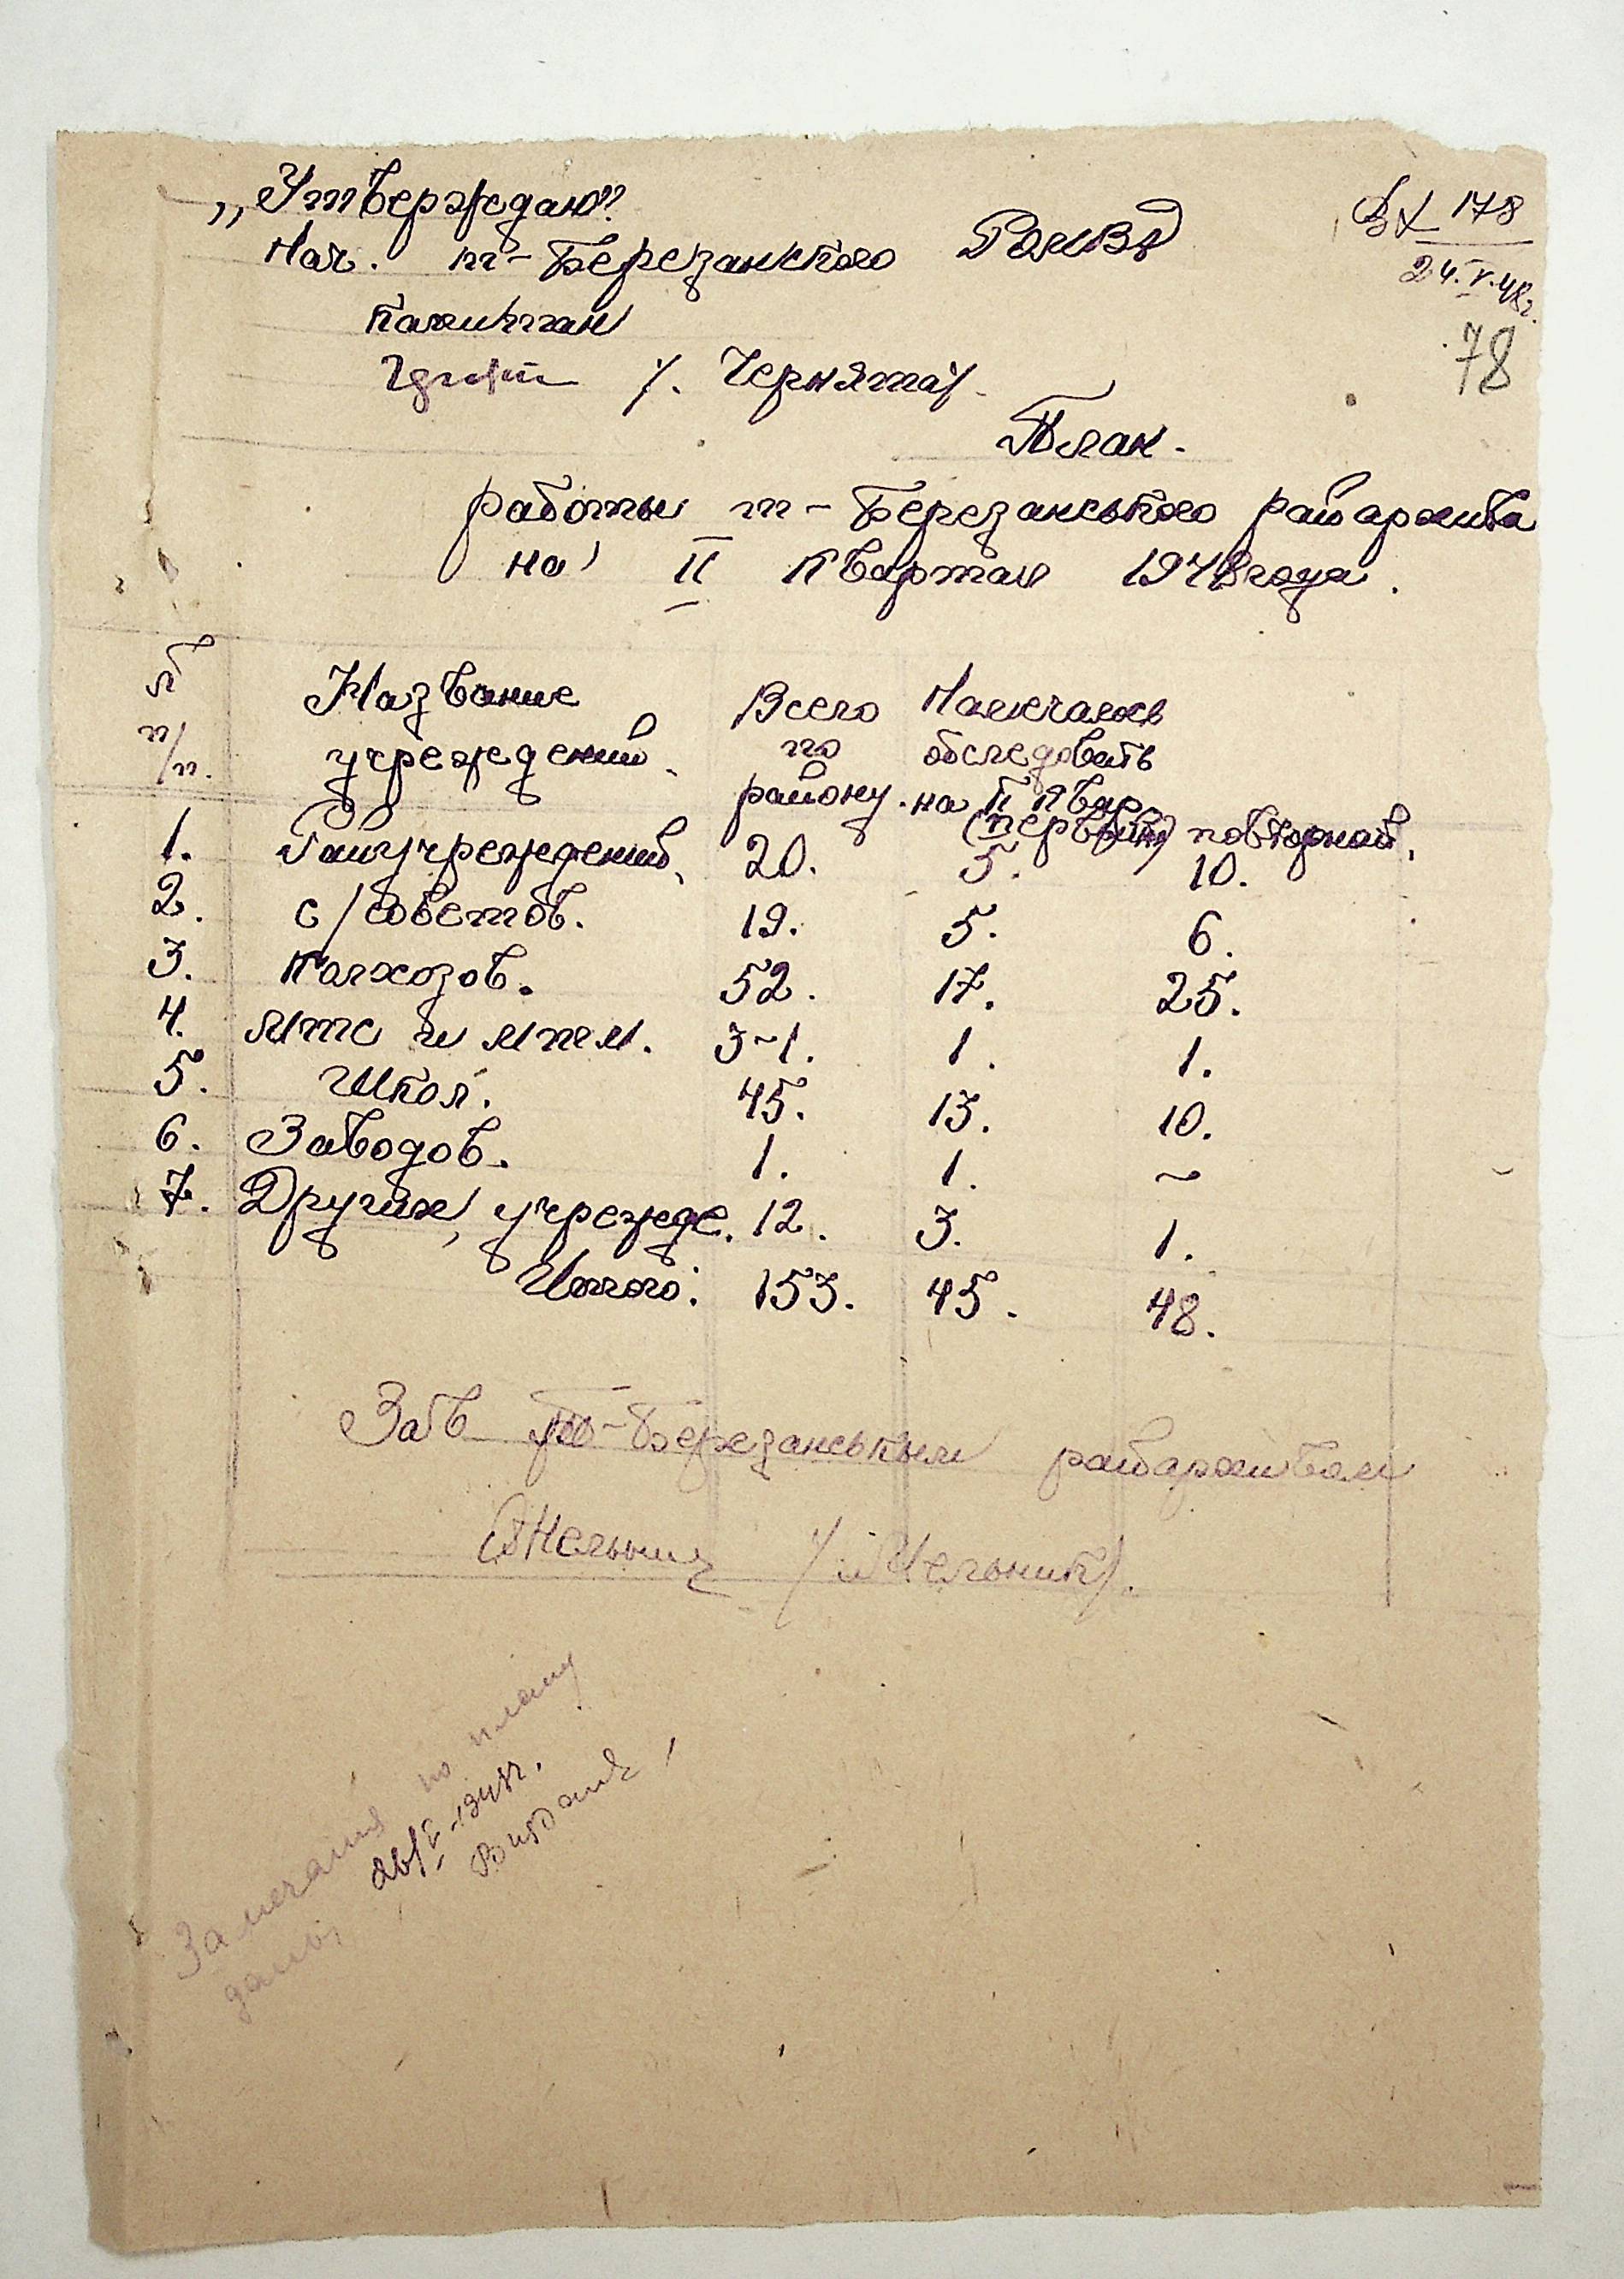 „Утверждаю"
Вх 178
24.V.48г.
78
Нач. т-Березанского РОМВД
Капитан
/. Чернята/.
План.
работы т-Березанського райархива
на II квартал 1948 года.
№ п/п.
Название учреждений.
Всего по району.
Намечалось обследовать на II квар.
(первичн) повторной.
1. Райучреждений. 20. 5. 10.
2. с/советов. 19. 5. 6.
3. Колхозов. 52. 17. 25.
4. Мтс и мпем. 3-1. 1. 1.
5. Школ. 45. 13. 10.
6. Заводов. 1. 1. ~
7. Других учрежде. 12. 3. 1.
Итого: 153. 45. 48.
Зав т-Березанськым райархивом
Мельник /Мельник/.
Замечания по плану
даны 26/V-1948г.